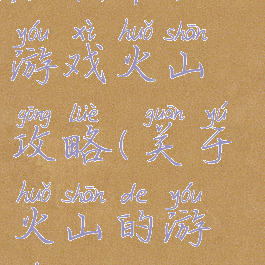 yóu xì huǒ shān
游戏火山
gōng lüè guān yú
攻略(关于
huǒ shān de yóu
火山的游